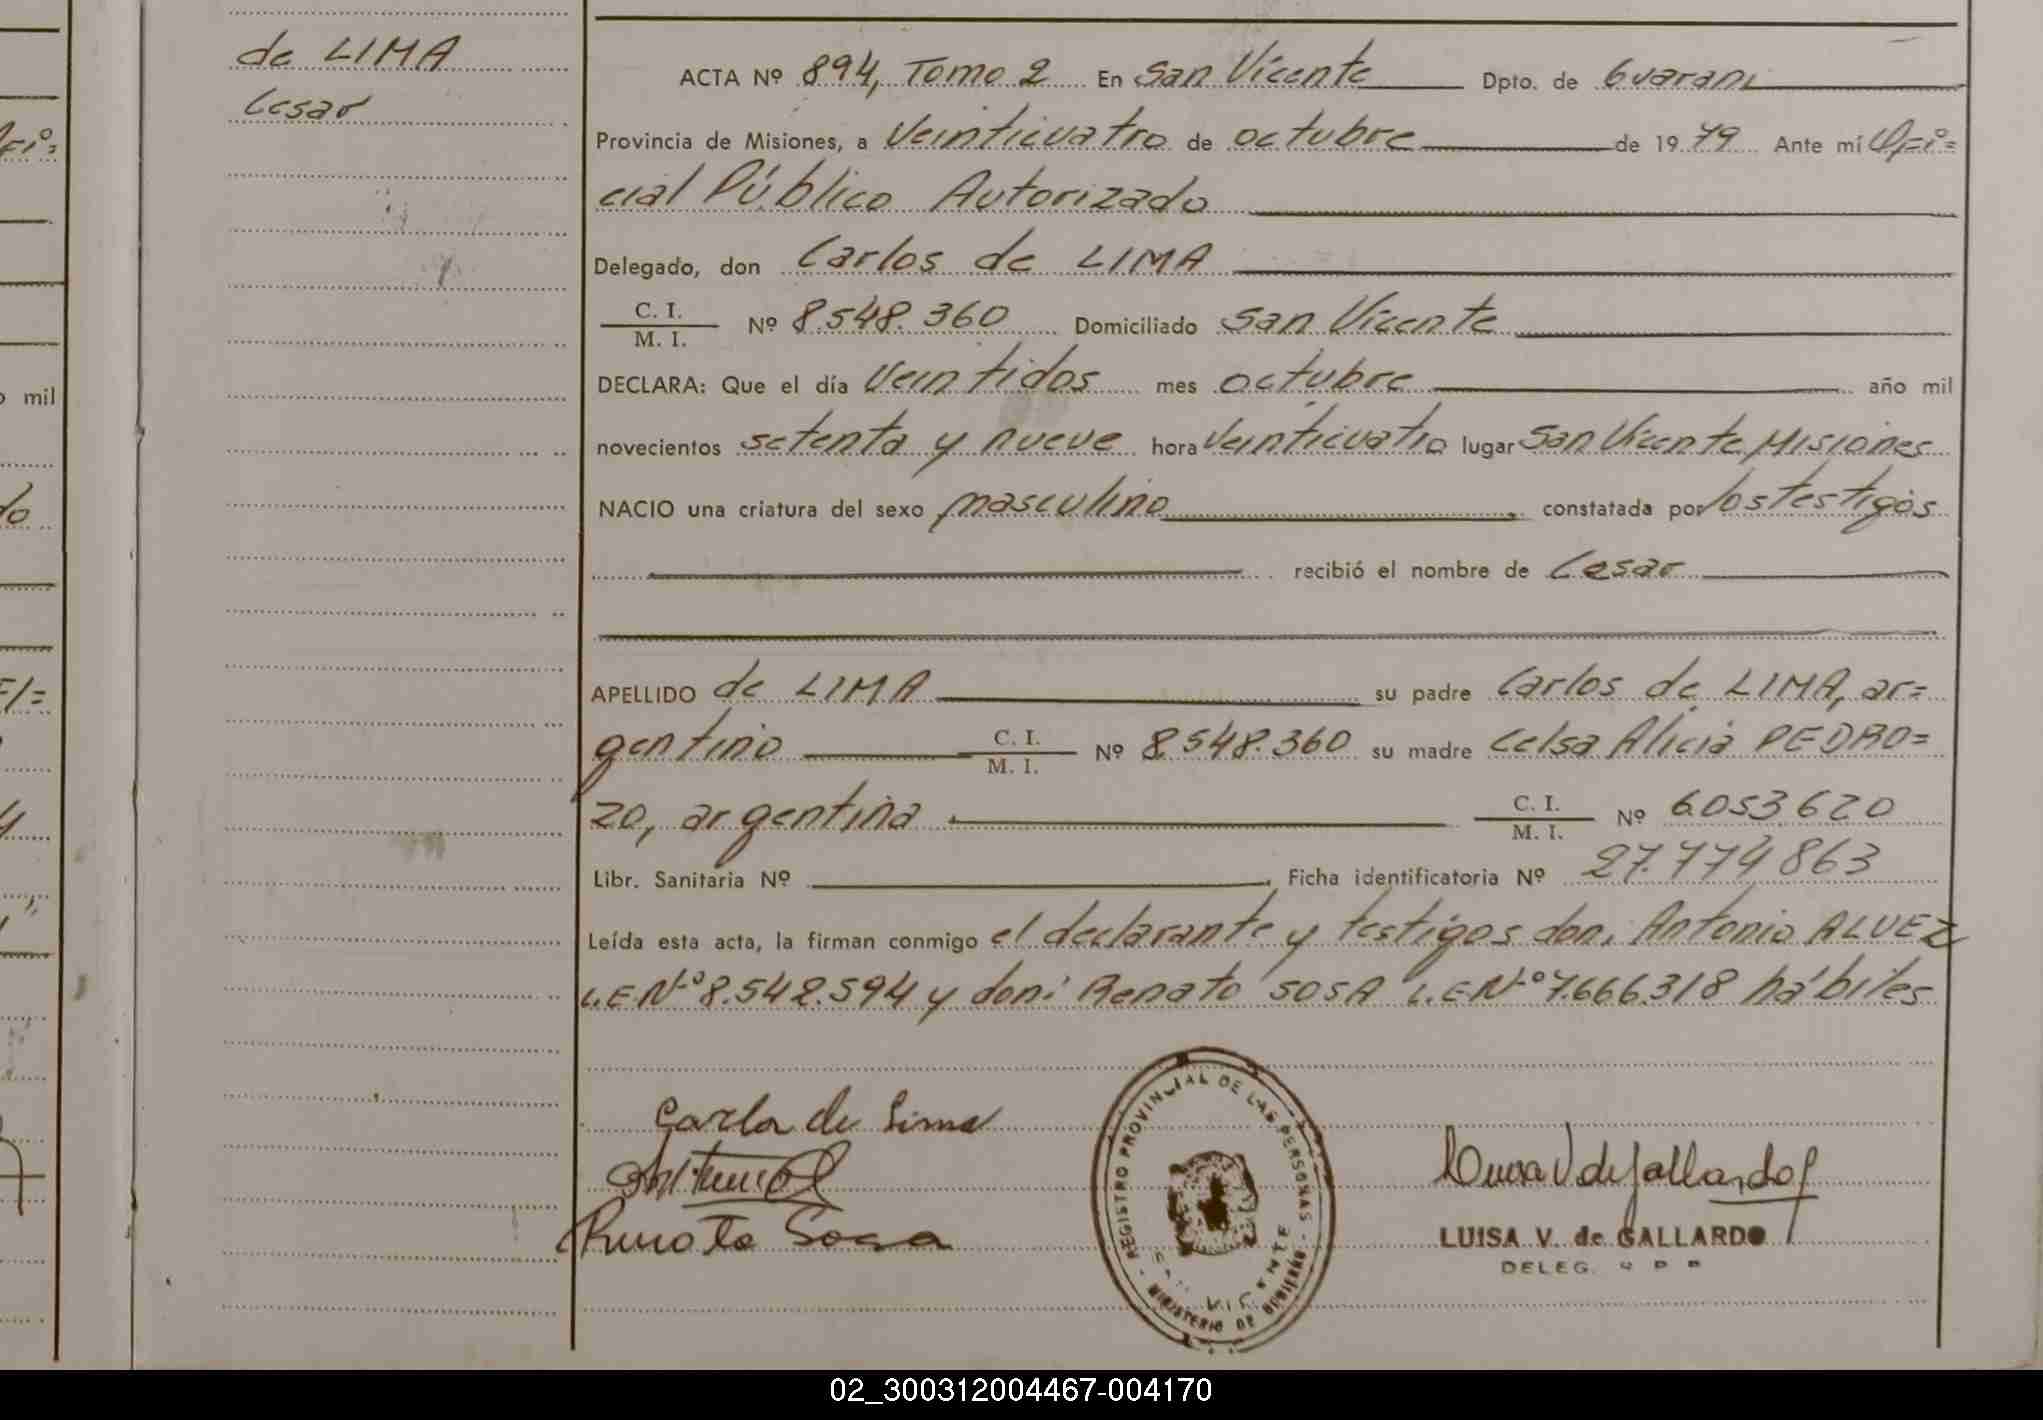 de LIMA
Cesar
ACTA Nº 894, Tomo 2 En San Vicente Dpto. de Guarani
Provincia de Misiones, a Veinticuatro de octubre de 1979 Ante mí Ofi=
cial Público Autorizado
Delegado, don Carlos de LIMA
C. I.
M. I. Nº 8.548.360 Domiciliado San Vicente
DECLARA: Que el día Veintidos mes octubre año mil
novecientos setenta y nueve hora Veinticuatro lugar San Vicente Misiones
NACIO una criatura del sexo masculino constatada por los testigos
recibió el nombre de Cesar
APELLIDO de LIMA su padre Carlos de LIMA, ar=
gentino C. I. M. I. Nº 8.548.360 su madre Celsa Alicia PEDRO=
zo, argentina C. I. M. I. Nº 6.053.620
Libr. Sanitaria Nº Ficha identificatoria Nº 27.774863
Leída esta acta, la firman conmigo el declarante y testigos don: Antonio ALVEZ
L.E.Nº 8.542.594 y don: Renato SOSA L.E.Nº 7.666.318 hábiles
Carlos de Lima
Renato Sosa
REGISTRO PROVINCIAL DE LAS PERSONAS
SAN VICENTE
MINISTERIO DE GOBIERNO
Luisa V de Gallardo
LUISA V. de GALLARDO
DELEG.
o mil
02_300312004467-004170